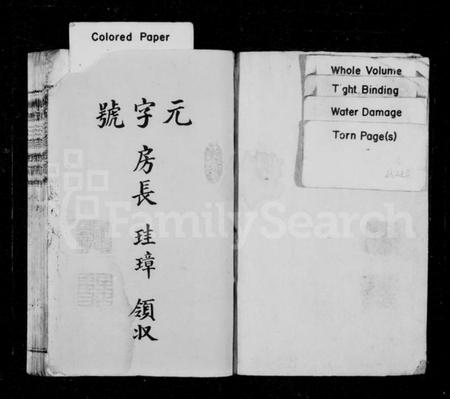 Colored Paper
元字號
房長珪璋領収
Whole Volume
Tight Binding
Water Damage
Torn Page(s)
FamilySearch